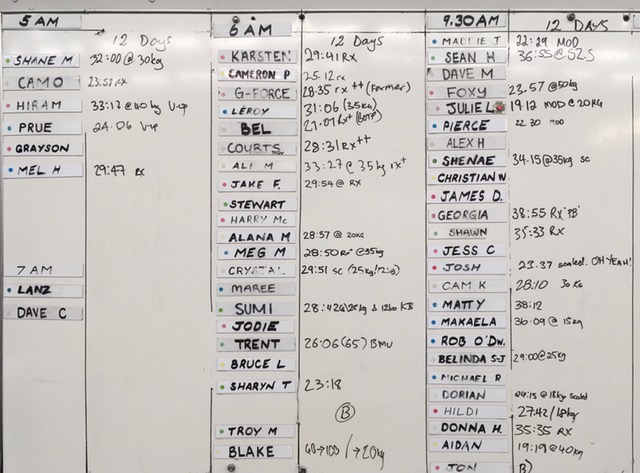 5 AM
12 Days
SHANE M 32:00 @ 30kg
CAMO 23:51 RX
HIRAM 33:17 @ 40kg V-up
PRUE 24:06 V-up
GRAYSON
MEL H 29:47 RX
7 AM
LANZ
DAVE C
6 AM
12 Days
KARSTEN 29:41 RX
CAMERON P 25:12 rx
G-FORCE 28:35 rx ++ (former)
LEROY 31:06 (35kg)
BEL RX+
COURTS 28:31 RX++
ALI M 33:27 @ 35kg rx+
JAKE F. 29:54 @ RX
STEWART
HARRY Mc
ALANA M 28:57 @ 20kg
MEG M 28:50 RX+ @35kg
CRYSTAL 29:51 sc
MAREE
SUMI 28:42 @ 25kg & 12kg KB
JODIE
TRENT 26:06 (65) BMU
BRUCE L
SHARYN T 23:18
B
TROY M
BLAKE 60→100 / →20kg
9.30 AM
12 DAYS
MADDIE T 22:29 MOD
SEAN H 36:55 @
DAVE M
FOXY 23.57 @50kg
JULIE L 19:12 MOD @ 20KG
PIERCE 22 30 MOD
ALEX H
SHENAE 34.15 @35kg sc
CHRISTIAN W
JAMES D.
GEORGIA 38:55 RX 'PB'
SHAWN 35:33 RX
JESS C
JOSH 23.37 scaled. OH YEAH!
CAM K 28:10 30 KG
MATTY 38:12
MAKAELA 36:09 @ 15kg
ROB O'Dw.
BELINDA S-J 29:00 @25kg
MICHAEL R
DORIAN @ 18kg scaled
HILDI 27:42 / 18kg
DONNA H. 35:35 RX
AIDAN 19:19 @ 40kg
JON B)